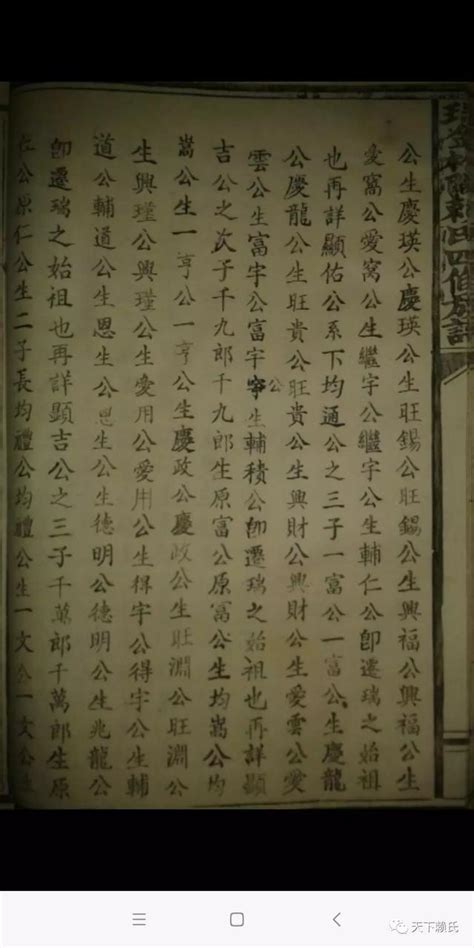 公生慶瑛公慶瑛公生旺錫公旺錫公生興福公興福公生
愛窩公愛窩公生繼宇公繼宇公生輔仁公卽遷瑞之始祖
也再詳顯佑公系下均通公之三子一富公一富公生慶龍
公慶龍公生旺貴公旺貴公生興財公興財公生愛雲公愛
雲公生富宇公富宇公生輔積公卽遷瑞之始祖也再詳顯
吉公之次子千九郎千九郎生原富公原富公生均嵩公均
嵩公生一亨公一亨公生慶政公慶政公生旺淵公旺淵公
生興瑾公興瑾公生愛用公愛用公生得宇公得宇公生輔
道公輔道公生恩生公恩生公生德明公德明公生兆龍公
卽遷瑞之始祖也再詳顯吉公之三子千萬郎千萬郎生原
仁公原仁公生二子長均禮公均禮公生一文公一文公生
天下赖氏